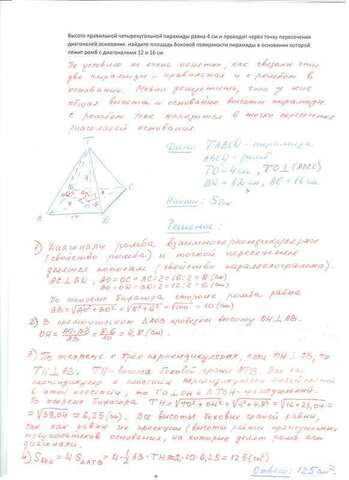 Высота правильной четырехугольной пирамиды равна 4 см и проходит через точку пересечения
диагоналей основания. найдите площадь боковой поверхности пирамиды в основании которой
лежит ромб с диагоналями 12 и 16 см
По условию не очень понятно, как связаны эти
две пирамиды - правильная и с ромбом в
основании. Можно допустить, что у них
общая высота и основание высоты пирамиды
с ромбом тоже находится в точке пересечения
диагоналей основания.
Дано: TABCD - пирамида
ABCD - ромб
TO = 4 см, TO⊥(ABCD)
BD = 12 см, AC = 16 см
Найти: Sбок
Решение:
T
B
C
A
D
1) Диагонали ромба взаимноперпендикулярны
(свойство ромба) и точкой пересечения
делятся пополам (свойство параллелограмма).
AC⊥BD, AO=OC=AC:2=16:2=8(см)
BO=OD=BD:2=12:2=6(см)
По теореме Пифагора сторона ромба равна
AB=√AO²+BO²=√8²+6²=√100=10(см)
2) В прямоугольном △AOB проведём высоту OH⊥AB.
OH=AO·BO/AB=8·6/10=4,8(см).
3) По теореме о трёх перпендикулярах, если OH⊥AB, то
TH⊥AB. TH - высота боковой грани ATB. Так как
перпендикуляр к плоскости перпендикулярен любой прямой
в этой плоскости, то TO⊥OH и △TOH - прямоугольный.
По теореме Пифагора TH=√TO²+OH²=√4²+4,8²=√16+23,04=
=√39,04≈6,25(см). Все высоты боковых граней равны,
так как равны их проекции (высоты равных прямоугольных
треугольников основания, на которые делят ромб его
диагонали.
4) Sбок=4S△ATB=4·1/2·AB·TH≈2·10·6,25=125(см²).
Ответ: 125 см².